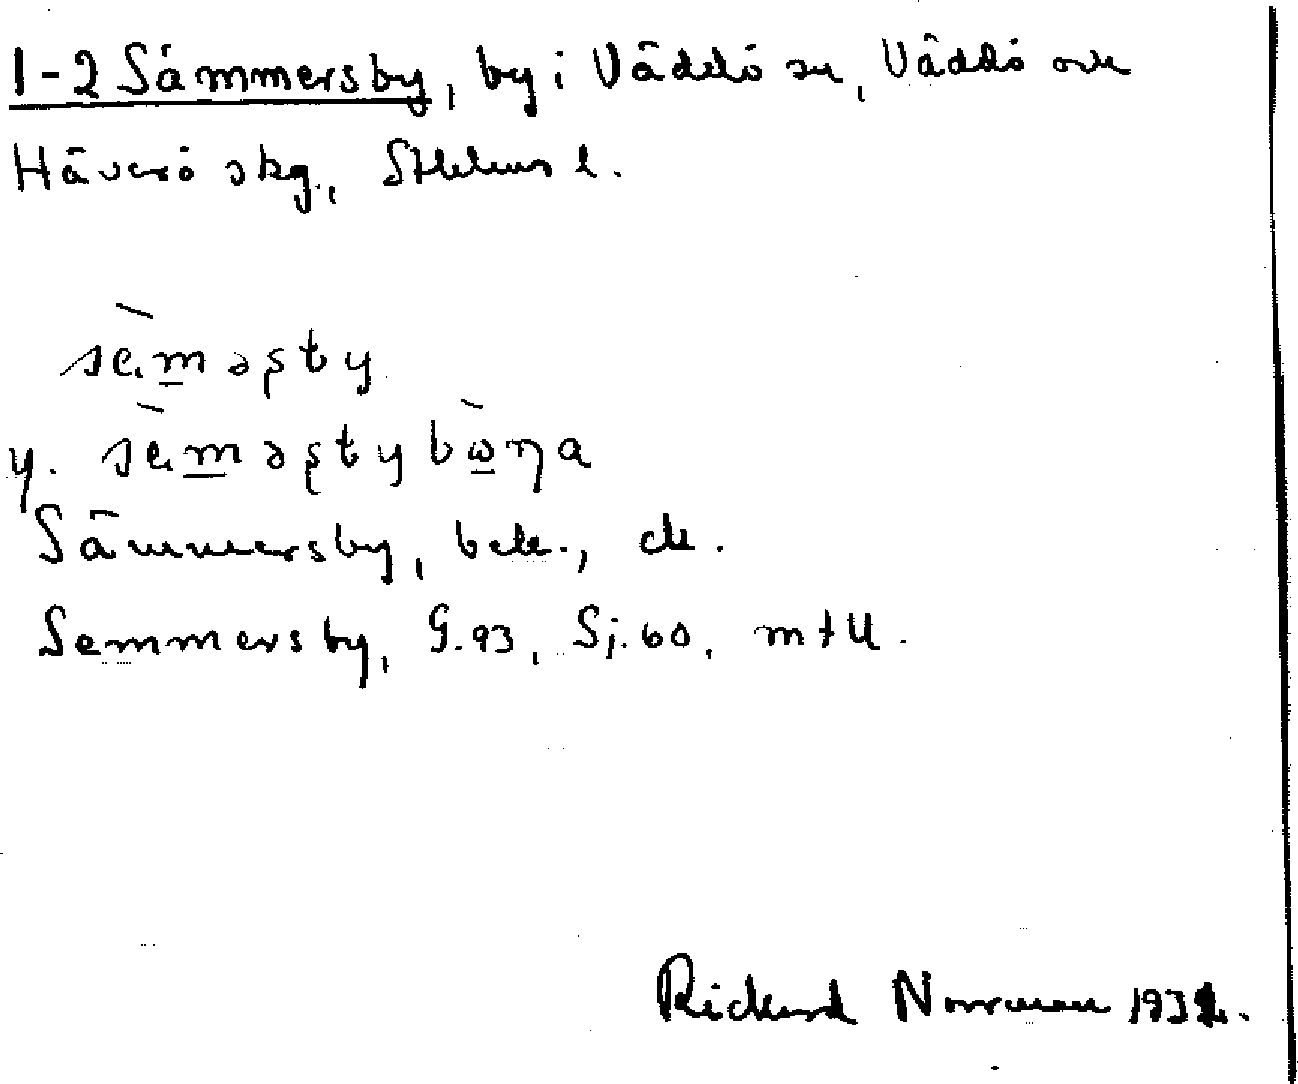 1-2 Sämmersby, by i Väddö sn, Väddö och
Häverö skg., Sthlms l.
sèməʂty
y. sèməʂtybòŋa
Sämmersby, bebl., ek.
Semmersby, G. 93, Sj. 60, mtU.
Rickard Norrman 1932.